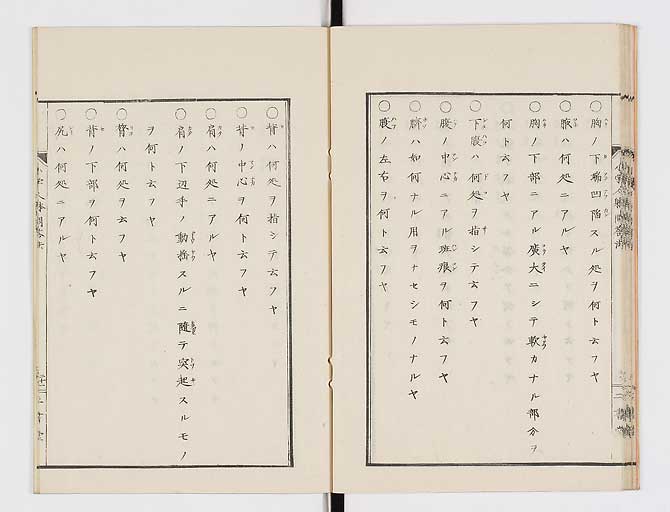 ○胸ノ下端凹陥スル処ヲ何ト云フヤ
○腋ハ何処ニアルヤ
○胸ノ下部ニアル廣大ニシテ軟カナル部分ヲ
何ト云フヤ
○下腹ハ何処ヲ指シテ云フヤ
○腹ノ中心ニアル斑痕ヲ何ト云フヤ
○臍ハ如何ナル用ヲナセシモノナルヤ
○腹ノ左右ヲ何ト云フヤ
○背ハ何処ヲ指シテ云フヤ
○背ノ中心ヲ何ト云フヤ
○肩ハ何処ニアルヤ
○肩ノ下辺手ノ動揺スルニ随テ突起スルモノ
ヲ何ト云フヤ
○膂ハ何処ヲ云フヤ
○背ノ下部ヲ何ト云フヤ
○尻ハ何処ニアルヤ